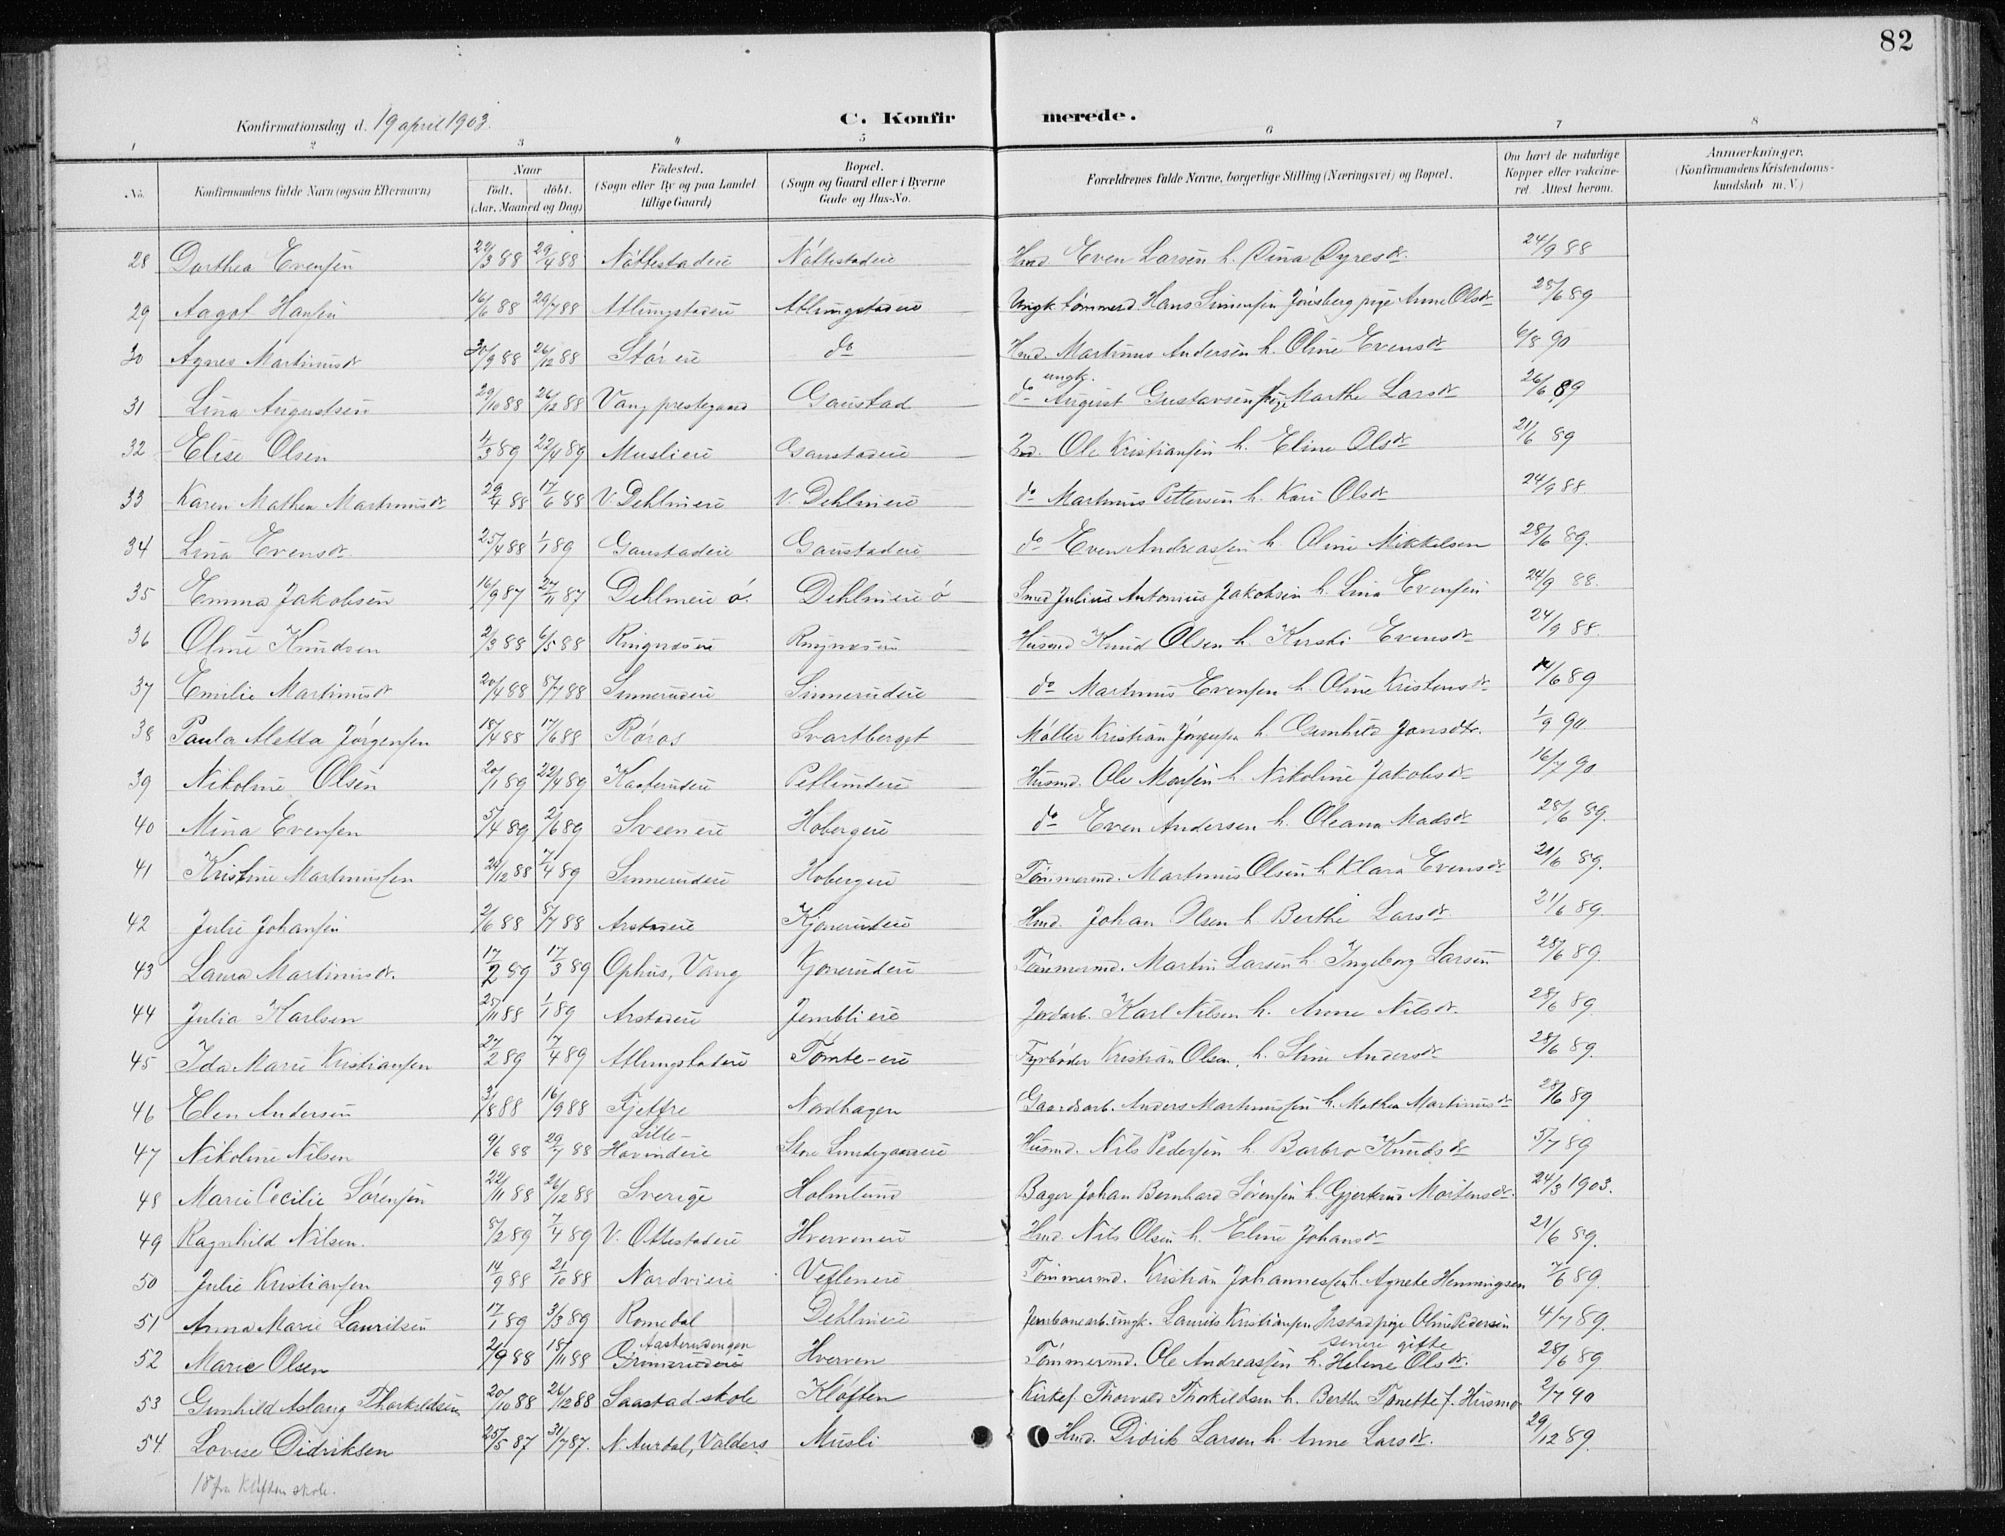 82
Konfirmationsdag d. 19 april 1903.
C. Konfirmerede.
1 2 3 4 5 6 7 8
No. Konfirmandens fulde Navn (ogsaa Efternavn) Naar født, døbt. (Aar, Maaned og Dag) Fødested. (Sogn eller By og paa Landet tillige Gaard) Bopæl. (Sogn og Gaard eller i Byerne Gade og Hus-No. Forældrenes fulde Navne, borgerlige Stilling (Næringsvei) og Bopæl. Om havt de naturlige Kopper eller vakcineret. Attest herom. Anmærkninger. (Konfirmandens Kristendomskundskab m. V.)
28 Dorthea Evensen 29/3 88 29/4 88 Nøttestadeie Nøttestadeie Hmd Even Larsen h. Dina Dyresdr. 24/9 88
29 Aagot Hansen 16/6 88 29/7 88 Atlungstadeie Atlungstadeie Ungk. tømmerd. Hans Simensen Jønsberg pige Anne Olsdr 28/6 89
30 Agnes Martinusdr 30/9 88 26/12 88 Stór eie do Hmd. Martinus Andersen h. Oline Evensdr 6/8 90
31 Lina Augustsen 29/10 88 26/12 88 Vang prestegaard Gaustad do ungk. August Gustavsen pige Marthe Larsdr 26/6 89
32 Elise Olsen 4/3 89 22/4 89 Muslieie Gaustadeie Hmd. Ole Kristiansen h. Eline Olsdr 21/6 89
33 Karen Mathea Martinusdr 29/4 88 17/6 88 V. Dehlineie V. Dehlineie do Martinus Pettersen h. Kari Olsdr 24/9 88
34 Lina Evensdr. 25/4 88 1/1 89 Gaustadeie Gaustadeie do Even Andreassen h. Oline Mikkelsen 28/6 89.
35 Emma Jakobsen 16/9 87 27/11 87 Dehlineie ø. Dehlineie ø Smed Julius Antonius Jakobsen h. Lina Evensen 24/9 88.
36 Oline Knudsen 2/3 88 6/5 88 Ringnæseie Ringnæseie Husmd Knud Olsen h. Kirsti Evensdr 24/9 88.
37 Emilie Martinusdr 20/4 88 8/7 88 Sinnerudeie Sinnerudeie do Martinus Evensen h. Oline Kristensdr 14/6 89
38 Paula Aletta Jørgensen 18/4 88 17/6 88 Røros Svartberget Møller Kristian Jørgensen h. Gunhild Jonsdtr. 1/9 90
39 Nikoline Olsen 20/1 89 22/4 89 Kaaterudeie Petlundeie Husmd. Ole Monsen h. Nikoline Jakobsdr 16/7 90
40 Mina Evensen 5/4 89 2/6 89 Sveen eie Hobergeie do Even Andersen h. Oleana Madsdr 28/6 89.
41 Kristine Martinussen 24/12 88 7/4 89 Sinnerudeie Hobergeie Tømmermd. Martinus Olsen h. Klara Evensdr 21/6 89.
42 Julie Johansen 2/6 88 8/7 88 Arstadeie Kjonerudeie Hmd. Johan Olsen h. Berthe Larsdr 21/6 89.
43 Laura Martinusdr. 17/2 89 17/3 89 Ophus, Vang Kjonerudeie Tømmermd. Martin Larsen h. Ingeborg Larsen 28/6 89.
44 Julia Karlsen 25/11 88 1/1 89 Arstadeie Jemblieie Jordarb. Karl Nilsen h. Anne Nilsdr. 28/6 89.
45 Ida Marie Kristiansen 27/2 89 7/4 89 Atlungstadeie Tomte-eie Fyrbøder Kristian Olsen, h. Stine Andersdr 28/6 89.
46 Elen Andersen 3/8 88 16/9 88 Fjettre Nordhagen Gaardsarb. Anders Martinussen h. Mathea Martinusdr 28/6 89
47 Nikoline Nilsen 9/6 88 29/7 88 Lille-Havindeie Store Lundegaareie Husmd. Nils Pedersen h. Barbro Knudsdr 5/7 89
48 Marie Cecilie Sørensen 22/11 88 26/12 88 Sverige Holmlund Bager Johan Bernhard Sørensen h. Gjertrud Mortensdr. 24/3 1903.
49 Ragnhild Nilsen. 8/2 89 7/4 89 V. Ottestadeie Hverveneie Hmd. Nils Olsen h. Eline Johansdr 21/6 89.
50 Julie Kristiansen 14/9 88 21/10 88 Nordvieie Vefleneie Tømmermd. Kristian Johannessen h. Agnete Henningsen 7/6 89.
51 Anna Marie Lauritsen 17/1 89 3/3 89 Romedal Dehlineie Jernbanearb. ungk. Laurits Kristiansen Irstad pige Oline Pedersen 4/7 89.
52 Marie Olsen 2/9 88 18/11 88 Aasterudengen Grimerudeie Hverven Tømmermd. Ole Andreassen h. senere gifte Helene Olsdr. 28/6 89.
53 Gunhild Aslaug Thorkildsen 20/10 88 26/12 88 Saastad skole Kløften Kirkes. Thorvald Thorkildsen h. Berthe Tonette f. Husmo 2/7 90
54 Lovise Didriksen 25/5 87 31/7 87. N. Aurdal, Valders Musli Hmd. Didrik Larsen h. Anne Larsdr. 29/12 89.
18 fra Kløften skole.